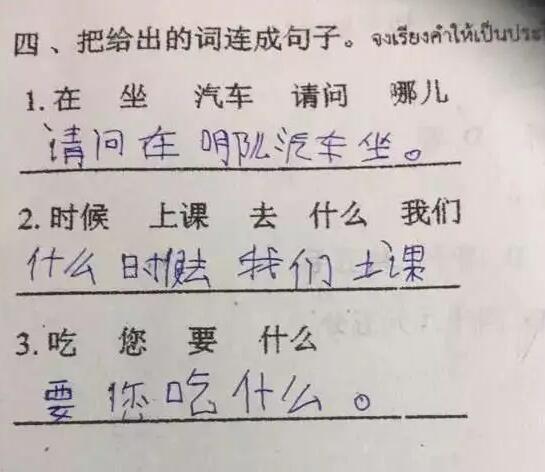 四、把给出的词连成句子。จงเรียงคำให้เป็นประ
1.在 坐 汽车 请问 哪儿
请问在 哪儿汽车坐。
2.时候 上课 去 什么 我们
什么 时候去 我们 上课
3.吃 您 要 什么
要 您吃什么。